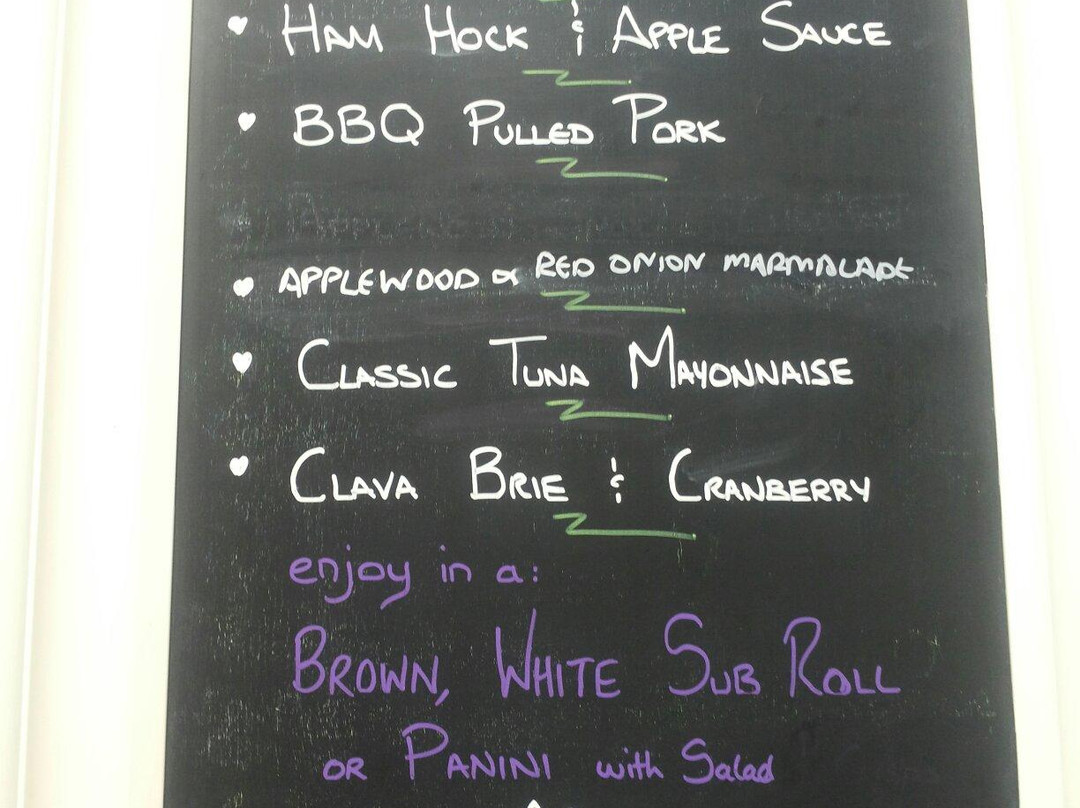 HAM HOCK & APPLE SAUCE
BBQ PULLED PORK
APPLEWOOD & RED ONION MARMALADE
CLASSIC TUNA MAYONNAISE
CLAVA BRIE & CRANBERRY
enjoy in a:
BROWN, WHITE SUB ROLL
OR PANINI with Salad